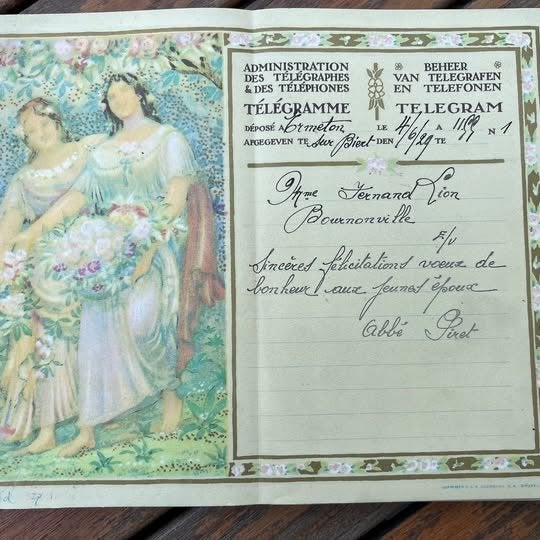 ADMINISTRATION
DES TÉLÉGRAPHES
& DES TÉLÉPHONES
TÉLÉGRAMME
BEHEER
VAN TELEGRAFEN
EN TELEFONEN
TELEGRAM
DÉPOSÉ Ermeton LE 4/6/29 A N 1
AFGEGEVEN TE sur Biert DEN TE
Mme Fernand Lion
Bournonville
E/V
Sincères félicitations voeux de
bonheur aux jeunes époux
Abbé Piret